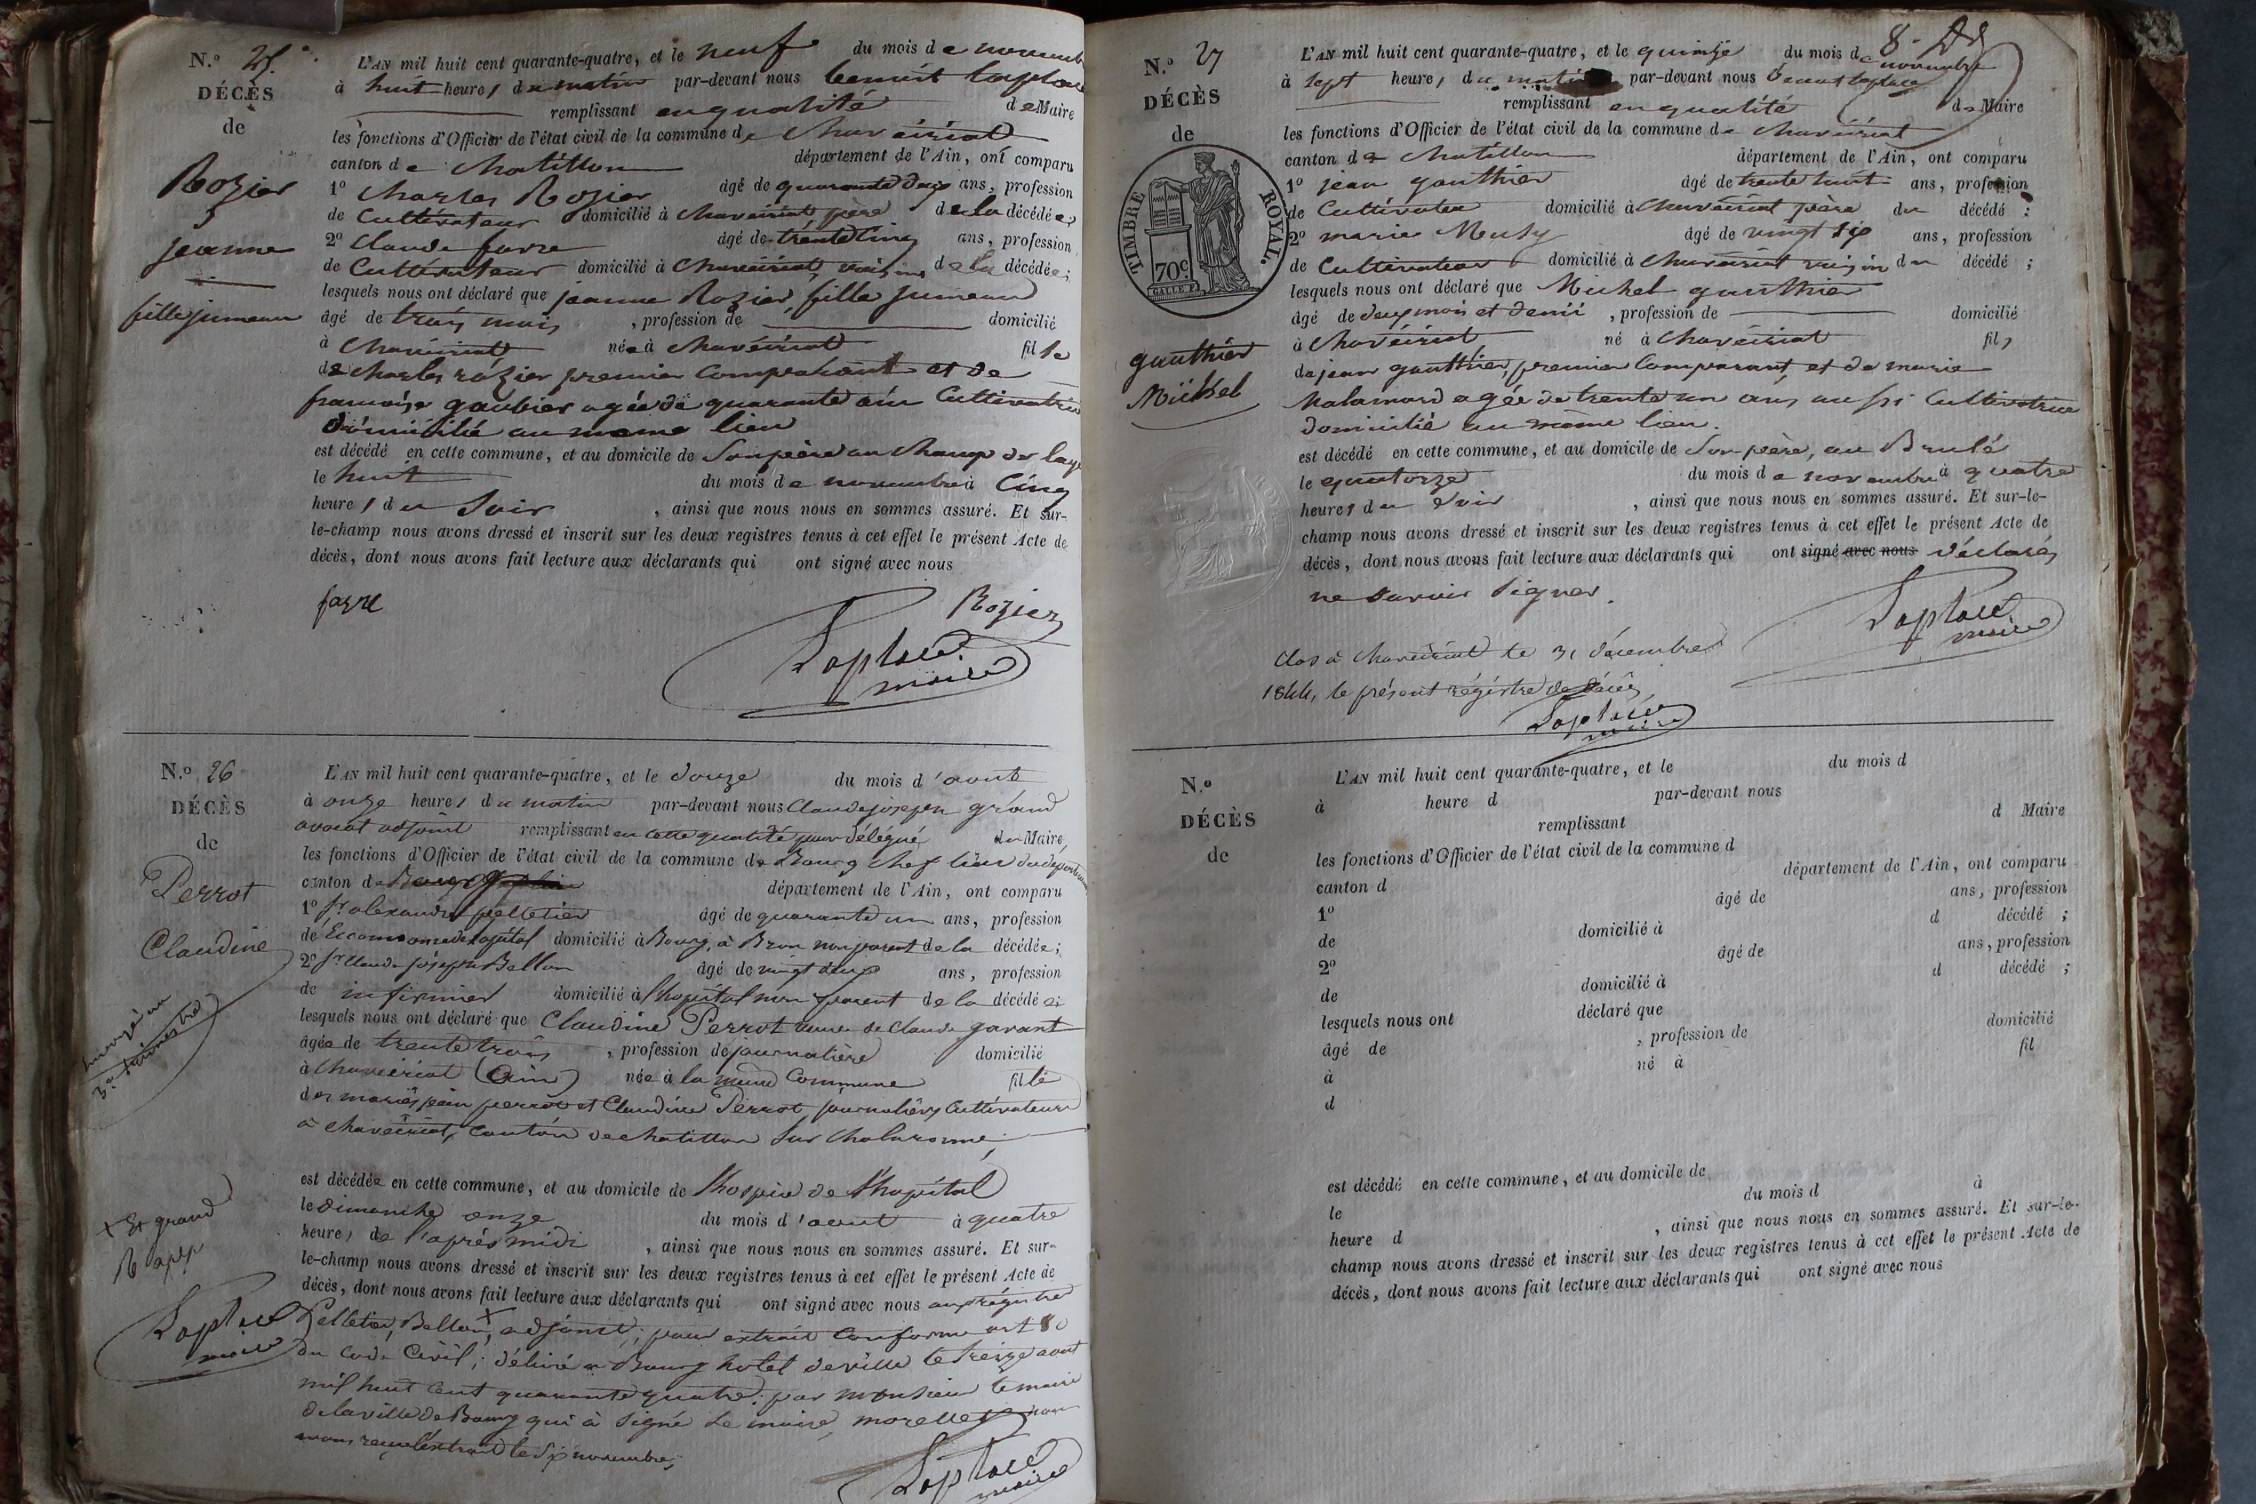 N.º 25.
DÉCÈS
de
Rozier
jeanne
fille jumeau
L'AN mil huit cent quarante-quatre, et le neuf du mois de novemb
à huit heures du matin par-devant nous benoit laplace
remplissant en qualité de Maire
les fonctions d'Officier de l'état civil de la commune de chaveiriat
canton de chatillon département de l'Ain, ont comparu
1º charles Rozier âgé de quarante deux ans, profession
de Cultivateur domicilié à chaveiriat père de la décédée;
2º Claude favre âgé de trente cinq ans, profession
de Cultivateur domicilié à chaveiriat, voisin de la décédée;
lesquels nous ont déclaré que jeanne Rozier, fille jumeau
âgé de trois mois, profession de domicilié
à chaveiriat née à chavéiriat fille
de charles rozier premier comparant et de
françoise gaubier agée de quarante ans Cultivatrice
domicilié au meme lieu
est décédé en cette commune, et au domicile de son père au champ de
le huit du mois de novembre à Cinq
heures du soir, ainsi que nous nous en sommes assuré. Et sur-
le-champ nous avons dressé et inscrit sur les deux registres tenus à cet effet le présent Acte de
décès, dont nous avons fait lecture aux déclarants qui ont signé avec nous
favre Rozier
Laplace
maire
N.º 26
DÉCÈS
de
Perrot
Claudine
3e trimestre
L'AN mil huit cent quarante-quatre, et le douze du mois d'aout
à onze heures du matin par-devant nous Claude joseph grand
avocat adjoint remplissant en cette qualité pour délégué du Maire,
les fonctions d'Officier de l'état civil de la commune de Bourg chef lieu du département
canton de Bourg département de l'Ain, ont comparu
1º Sr alexandre pelletier âgé de quarante un ans, profession
de Econome de l'hopital domicilié à Bourg, à Brou non parent de la décédée;
2º Sr Claude joseph Bellon âgé de vingt deux ans, profession
de infirmier domicilié à l'hopital non parent de la décédée;
lesquels nous ont déclaré que Claudine Perrot veuve de Claude gavant
âgée de trente trois, profession de journalière domicilié
à chaveiriat (Ain) née à la même Commune fille
des mariés jean perrot et Claudine Perrot, journaliers Cultivateurs
à chaveiriat, canton de chatillon sur chalaronne,
est décédée en cette commune, et au domicile de l'hospice de l'hopital
le dimanche onze du mois d'aout à quatre
heures de l'après midi, ainsi que nous nous en sommes assuré. Et sur-
le-champ nous avons dressé et inscrit sur les deux registres tenus à cet effet le présent Acte de
décès, dont nous avons fait lecture aux déclarants qui ont signé avec nous au régistre
Pelletier, Bellon, adjoint; pour extrait Conforme art 80
du code Civil; délivré à Bourg hotel de ville le treize aout
mil huit cent quarante quatre: par monsieur le maire
de la ville de Bourg qui à signé le maire, morellet
le six novembre;
X Et grand
R app
Laplace
maire
Laplace
maire
8. D
N.º 27
DÉCÈS
de
TIMBRE ROYAL.
70c.
GALLE F.
gauthier
Michel
L'AN mil huit cent quarante-quatre, et le quinze du mois de novembre
à sept heures du matin par-devant nous benoit laplace
remplissant en qualité de Maire
les fonctions d'Officier de l'état civil de la commune de chavéiriat
canton de chatillon département de l'Ain, ont comparu
1º jean gauthier âgé de trente huit ans, profession
de Cultivateur domicilié à chaveiriat père du décédé;
2º marie âgé de vingt six ans, profession
de Cultivateur domicilié à chaveiriat voisin du décédé;
lesquels nous ont déclaré que Michel gauthier
âgé de deux mois et demi, profession de domicilié
à chavéiriat né à chavéiriat fils
de jean gauthier, premier comparant, et de marie
Malamard agée de trente un ans, aussi Cultivatrice
domicilié au même lieu.
est décédé en cette commune, et au domicile de Son père, au Brulé
le quatorze du mois de novembre à quatre
heures du soir, ainsi que nous nous en sommes assuré. Et sur-le-
champ nous avons dressé et inscrit sur les deux registres tenus à cet effet le présent Acte de
décès, dont nous avons fait lecture aux déclarants qui ont signé avec nous déclarés
ne savoir signer.
Laplace
maire
Clos à chaveiriat le 31 décembre
1844, le présent régistre de décès
Laplace
maire
N.º
DÉCÈS
de
L'AN mil huit cent quarante-quatre, et le du mois d
à heure d par-devant nous
remplissant d Maire
les fonctions d'Officier de l'état civil de la commune d
canton d département de l'Ain, ont comparu
1º âgé de ans, profession
de domicilié à d décédé;
2º âgé de ans, profession
de domicilié à d décédé;
lesquels nous ont déclaré que
âgé de, profession de domicilié
à né à fil
d
est décédé en cette commune, et au domicile de
le du mois d à
heure d, ainsi que nous nous en sommes assuré. Et sur-le-
champ nous avons dressé et inscrit sur les deux registres tenus à cet effet le présent Acte de
décès, dont nous avons fait lecture aux déclarants qui ont signé avec nous